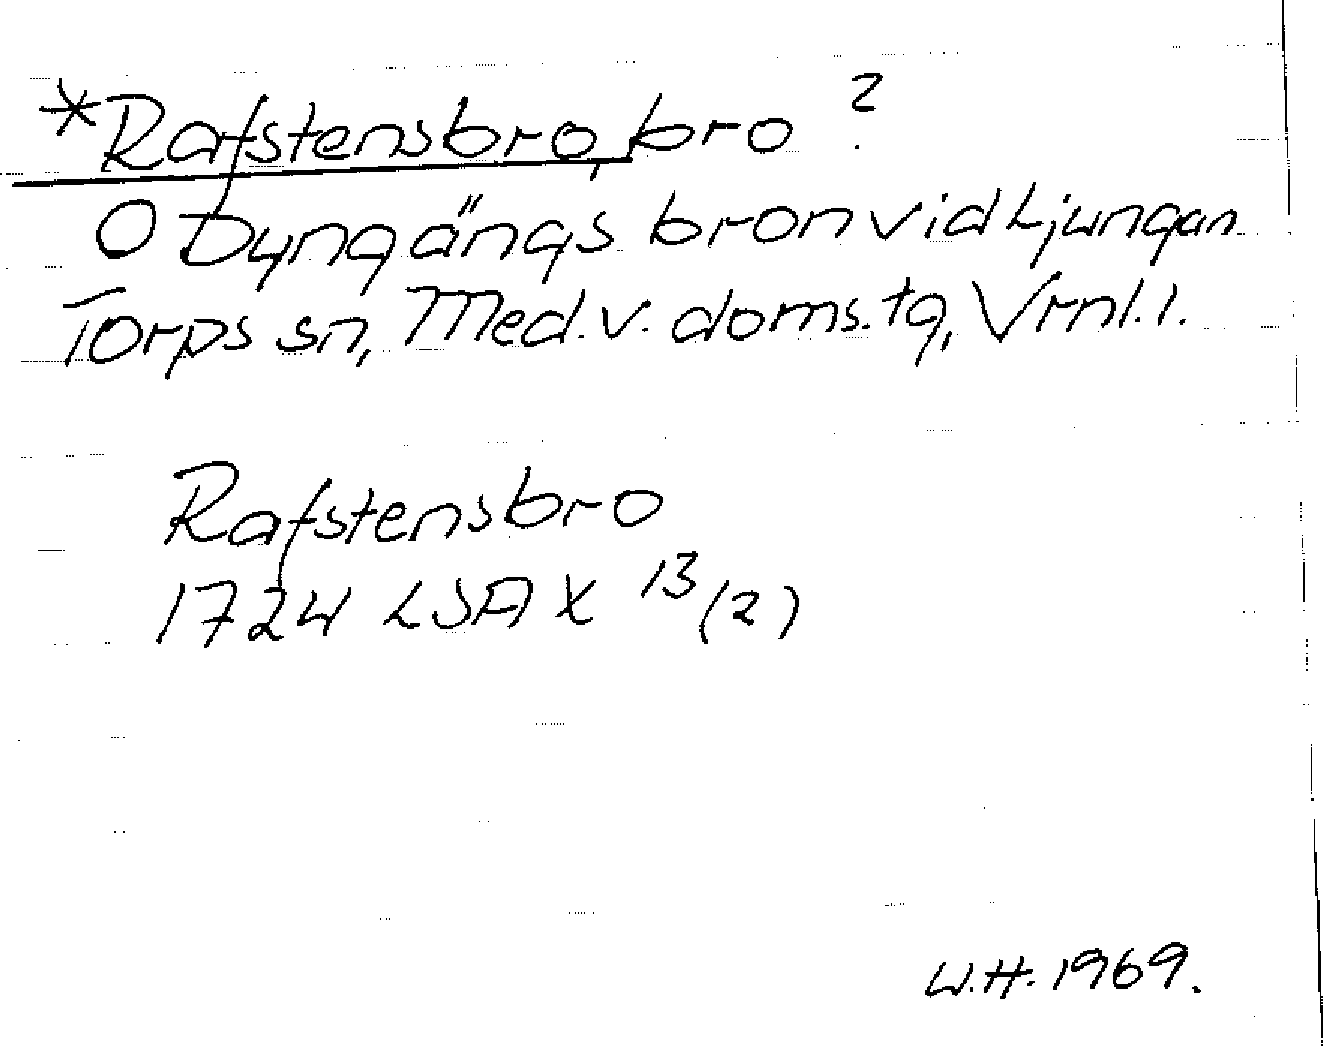 *Rafstensbro, bro ?
O Dyngängs bron vid Ljungan
Torps sn, Med.v. doms.tg, Vrnl.l.
Rafstensbro
1724 LSA X 13/(2)
W.H. 1969.